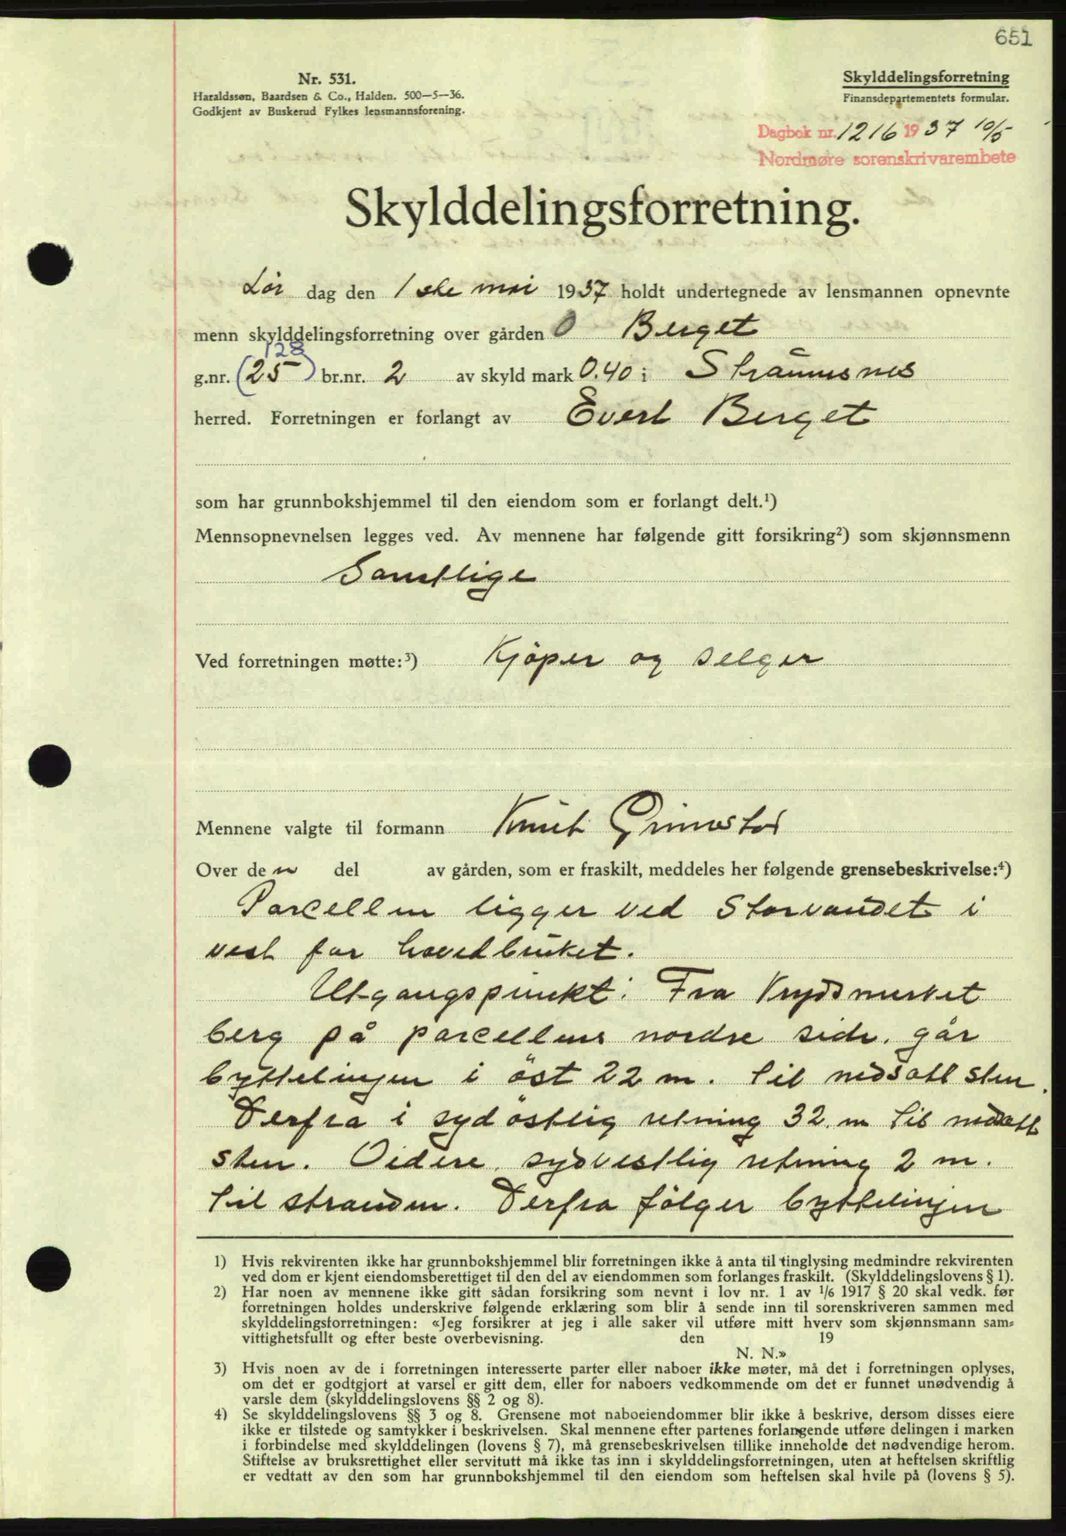 651
Nr. 531.
Haraldssøn, Baardsen & Co., Halden. 500—5—36.
Godkjent av Buskerud Fylkes lensmannsforening.
Skylddelingsforretning
Finansdepartementets formular.
Dagbok nr. 1216 1937 10/5
Nordmøre sorenskrivarembete
Skylddelingsforretning.
Lør dag den 1ste mai 1937 holdt undertegnede av lensmannen opnevnte
menn skylddelingsforretning over gården O Berget
128
g.nr. (25) br.nr. 2 av skyld mark 0.40 i Straumsnes
herred. Forretningen er forlangt av Evert Berget
som har grunnbokshjemmel til den eiendom som er forlangt delt.¹)
Mennsopnevnelsen legges ved. Av mennene har følgende gitt forsikring²) som skjønnsmenn
Samtlige
Ved forretningen møtte:³) Kjøper og selger
Mennene valgte til formann Knut Grimstad
Over den del av gården, som er fraskilt, meddeles her følgende grensebeskrivelse:⁴)
Parcellen ligger ved Storvandet i
vest for hovedbruket.
Utgangspunkt: Fra Krydsmerket
berg på parcellens nordre side. går
byttelinjen i öst 22 m. til nedsatt sten.
Derfra i sydöstlig retning 32 m til nedsatt
sten. Videre sydvestlig retning 2 m.
til stranden. Derfra fölger byttelinjen
1) Hvis rekvirenten ikke har grunnbokshjemmel blir forretningen ikke å anta til tinglysing medmindre rekvirenten
ved dom er kjent eiendomsberettiget til den del av eiendommen som forlanges fraskilt. (Skylddelingslovens § 1).
2) Har noen av mennene ikke gitt sådan forsikring som nevnt i lov nr. 1 av 1/6 1917 § 20 skal vedk. før
forretningen holdes underskrive følgende erklæring som blir å sende inn til sorenskriveren sammen med
skylddelingsforretningen: «Jeg forsikrer at jeg i alle saker vil utføre mitt hverv som skjønnsmann sam-
vittighetsfullt og efter beste overbevisning. den 19
N. N.»
3) Hvis noen av de i forretningen interesserte parter eller naboer ikke møter, må det i forretningen oplyses,
om det er godtgjort at varsel er gitt dem, eller for naboers vedkommende om det er funnet unødvendig å
varsle dem (skylddelingslovens §§ 2 og 8).
4) Se skylddelingslovens §§ 3 og 8. Grensene mot naboeiendommer blir ikke å beskrive, dersom disses eiere
ikke er tilstede og samtykker i beskrivelsen. Skal mennene efter partenes forlangende utføre delingen i marken
i forbindelse med skylddelingen (lovens § 7), må grensebeskrivelsen tillike inneholde det nødvendige herom.
Stiftelse av bruksrettighet eller servitutt må ikke tas inn i skylddelingsforretningen, uten at heftelsen skriftlig
er vedtatt av den som har grunnbokshjemmel til den eiendom som heftelsen skal hvile på (lovens § 5).